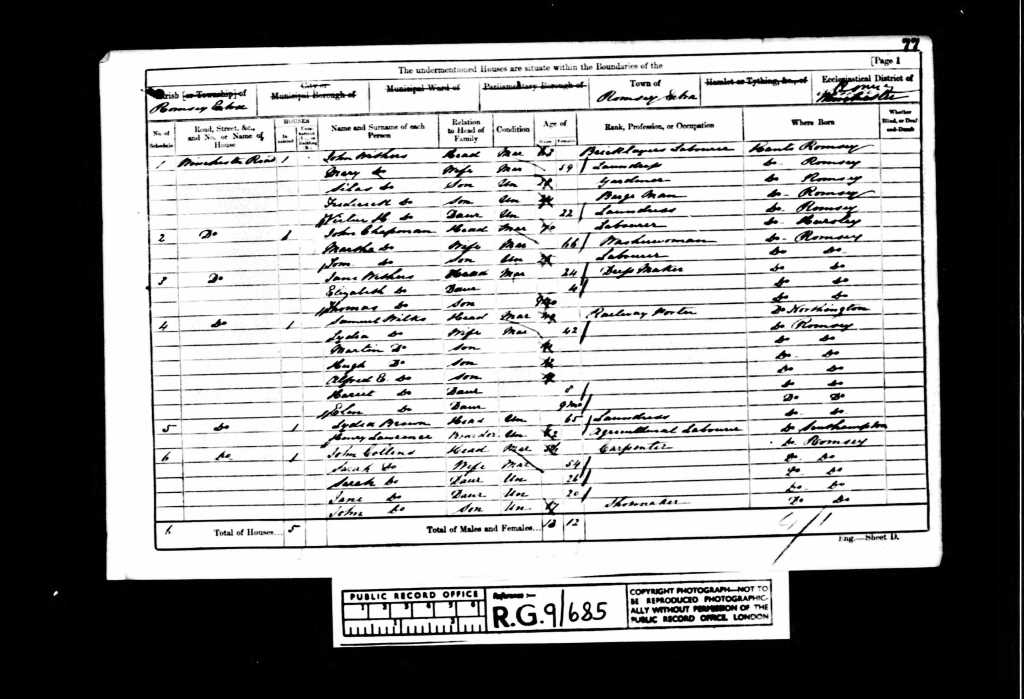 77
The undermentioned Houses are situate within the Boundaries of the [Page 1
Parish [or Township] of City or Municipal Borough of Municipal Ward of Parliamentary Borough of Town of Hamlet or Tything, &c., of Ecclesiastical District of
Romsey Extra Romsey Extra
No. of Schedule Road, Street, &c., and No. or Name of House HOUSES Inhabited Name and Surname of each Person Relation to Head of Family Condition Age of Males Females Rank, Profession, or Occupation Where Born Whether Blind, or Deaf-and-Dumb
1 Winchester Road 1 John Withers Head Mar 63 Bricklayers Labourer Hants Romsey
Mary Do Wife Mar 59 Laundress Do Romsey
Silas Do Son Un Gardener Do Romsey
Frederick Do Son Un Barge Man Do Romsey
Do Daur Un 22 Laundress Do Romsey
2 Do 1 John Chapman Head Mar 70 Labourer Do Hursley
Martha Do Wife Mar 66 Washerwoman Do Romsey
Tom Do Son Un Labourer Do Do
3 Do Jane Withers Head Mar 24 Dress Maker Do Do
Elizabeth Do Daur 4 Do Do
Thomas Do Son Do Do
4 Do 1 Samuel Wilks Head Mar Railway Porter Do Northington
Lydia Do Wife Mar 42 Do Romsey
Martin Do Son Do Do
Hugh Do Son Do Do
Alfred E. Do Son Do Do
Harriet Do Daur 8 Do Do
Ellen Do Daur 9 mo Do Do
5 Do 1 Lydia Brown Head Un 65 Laundress Do Do
Henry Lawrence Boarder Un Agricultural Labourer Do Southampton
6 Do 1 John Collins Head Mar 56 Carpenter Do Romsey
Sarah Do Wife Mar 54 Do Do
Sarah Do Daur Un 26 Do Do
Jane Do Daur Un 20 Do Do
John Do Son Un 17 Shoemaker Do Do
6 Total of Houses... 5 Total of Males and Females... 13 12
Eng.—Sheet D.
PUBLIC RECORD OFFICE
1 2 3 4 5 6
1 2
Reference :-
R.G. 9/685
COPYRIGHT PHOTOGRAPH—NOT TO
BE REPRODUCED PHOTOGRAPHIC-
ALLY WITHOUT PERMISSION OF THE
PUBLIC RECORD OFFICE, LONDON